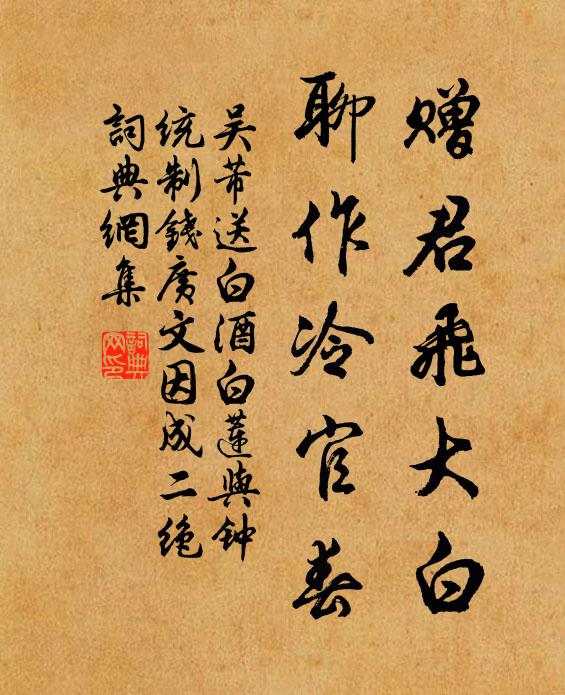 赠君飛大白
聊作冷官春
吴芾送白酒白蓮與钟
统制錢廣文因成二绝
詞典網集
詞典
网印